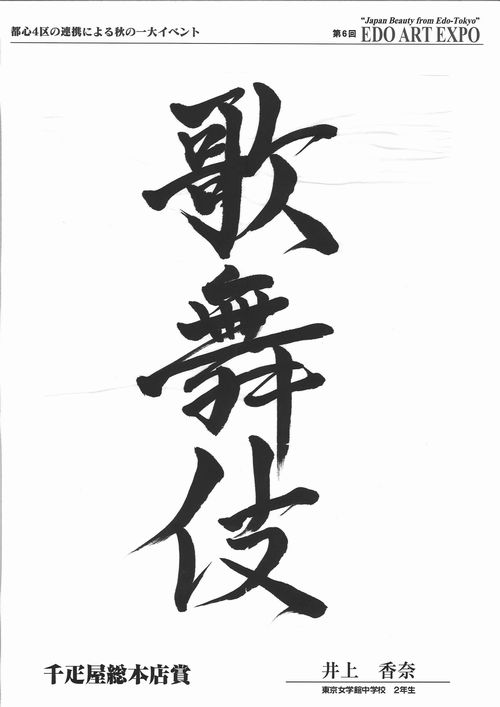 都心4区の連携による秋の一大イベント
"Japan Beauty from Edo-Tokyo"
第6回 EDO ART EXPO
歌舞伎
千疋屋総本店賞
井上 香奈
東京女学館中学校 2年生